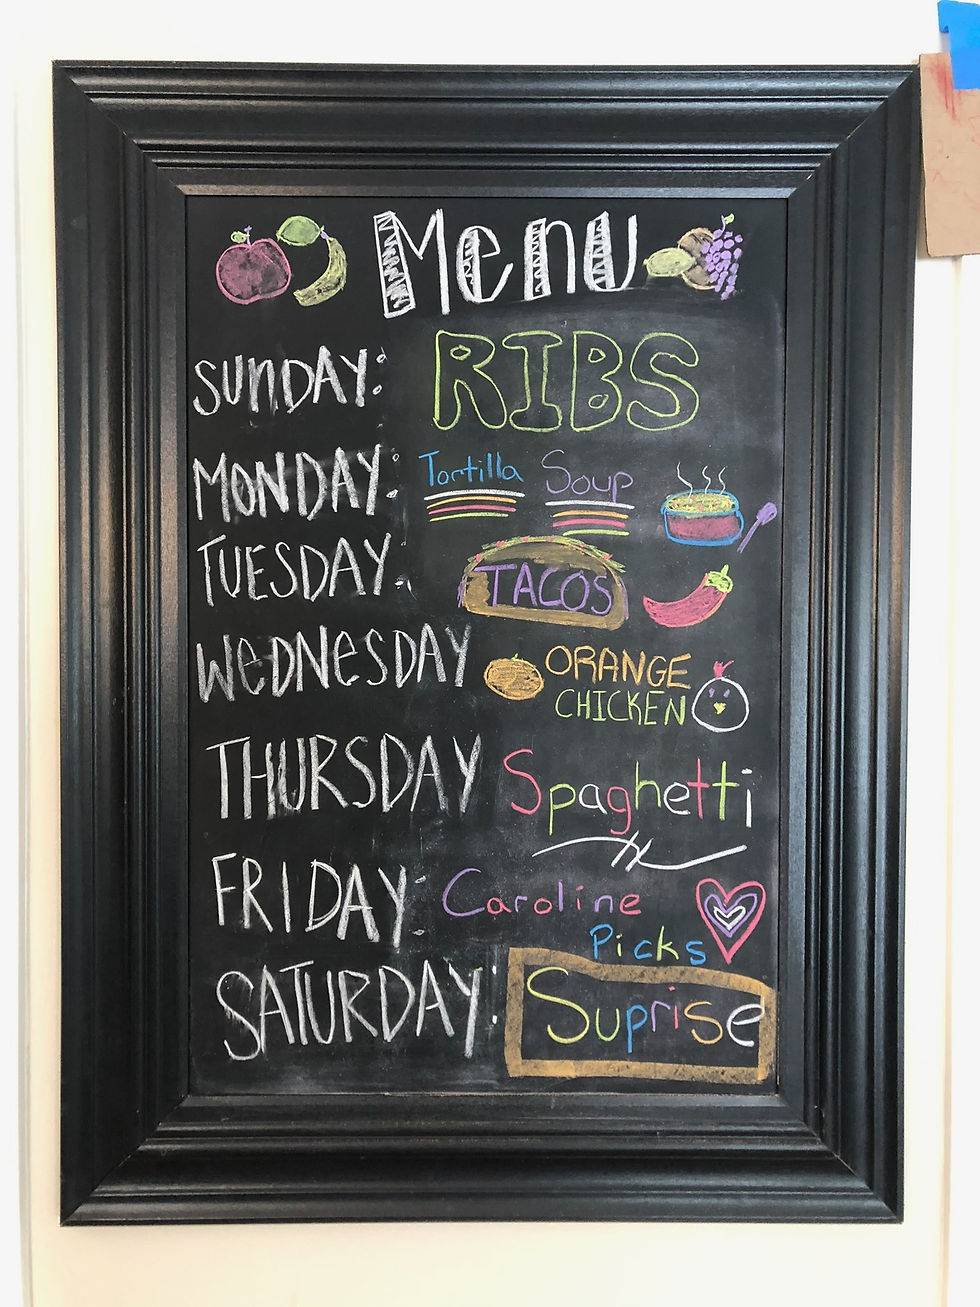 Menu
SUNDAY: RIBS
MONDAY: Tortilla Soup
TUESDAY: TACOS
WEDNESDAY ORANGE
CHICKEN
THURSDAY Spaghetti
FRIDAY: Caroline
Picks
SATURDAY: Suprise